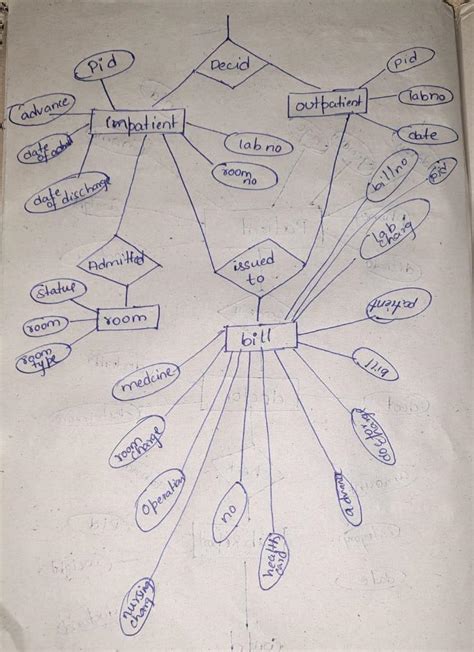 Decid
Pid
Pid
advance
outpatient
lab no
inpatient
date
date
of admit
lab no
room
no
bill no
Pid
date
of discharge
lab
charg
issued
to
Admitted
status
room
room
room
type
patient
bill
bill
medcine
doctor
charge
room
charge
operation
no
advance
health
card
nursing
charg